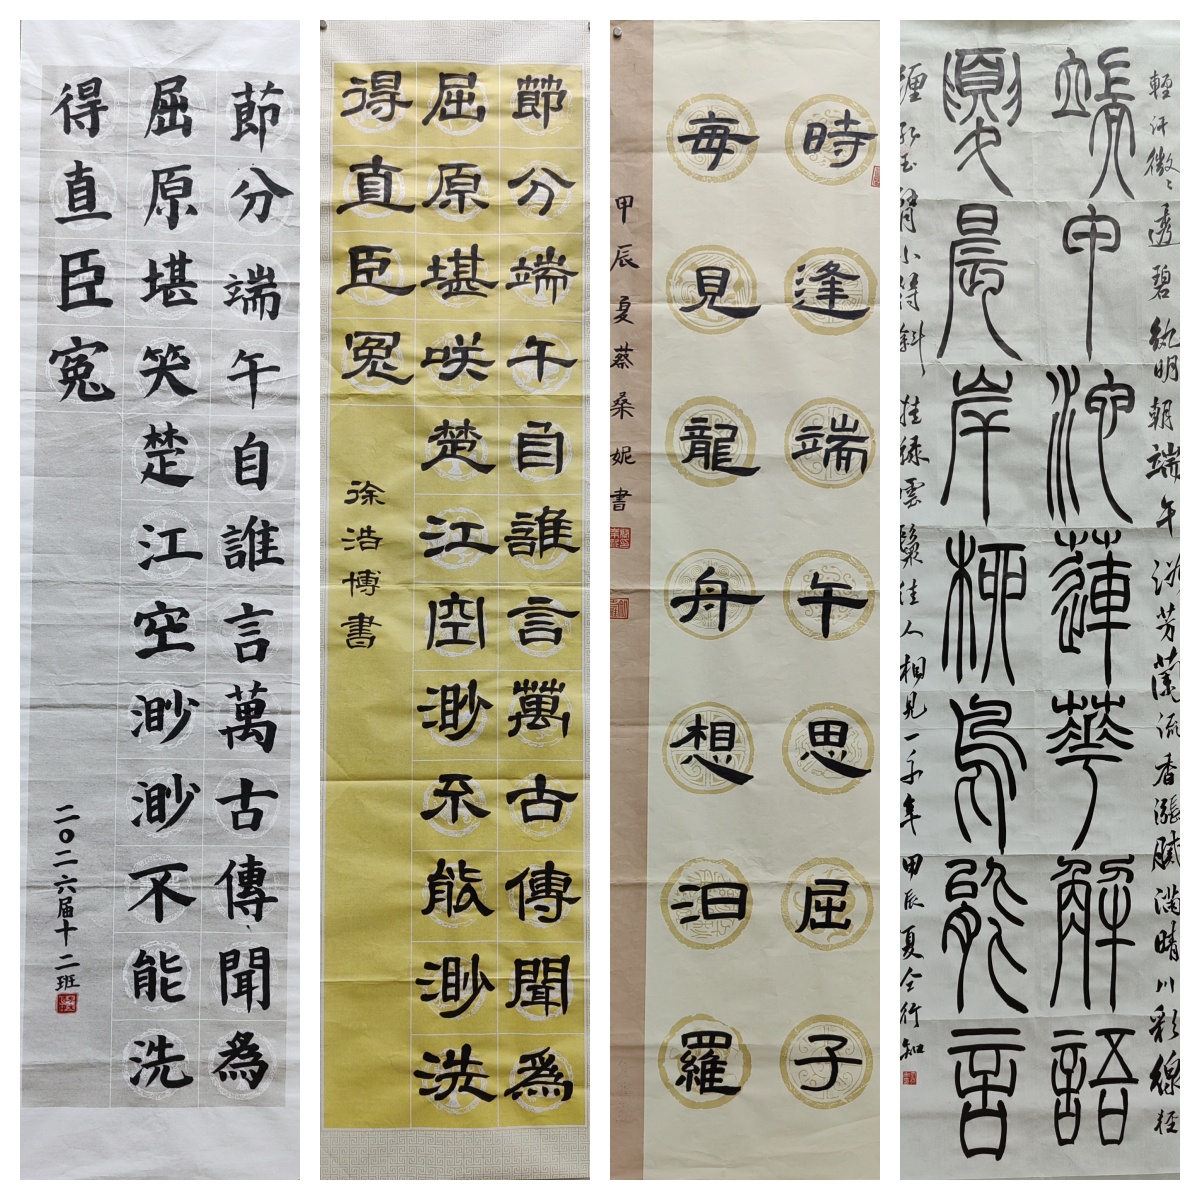 節分端午自誰言萬古傳聞為
屈原堪笑楚江空渺渺不能洗
得直臣冤
二〇二六届十二班
節分端午自誰言萬古傳聞爲
屈原堪咲楚江空渺不能渺洗
得直臣冤
徐浩博書
時逢端午思屈子
每見龍舟想汨羅
甲辰夏蔡桑妮書
輕汗微々透碧紈明朝端午浴芳蘭流香漲膩滿晴川彩線輕
中池蓮華解語
夏晨岸柳鳥能言
纏紅玉臂小符斜挂綠雲鬟佳人相見一千年甲辰夏仝行知